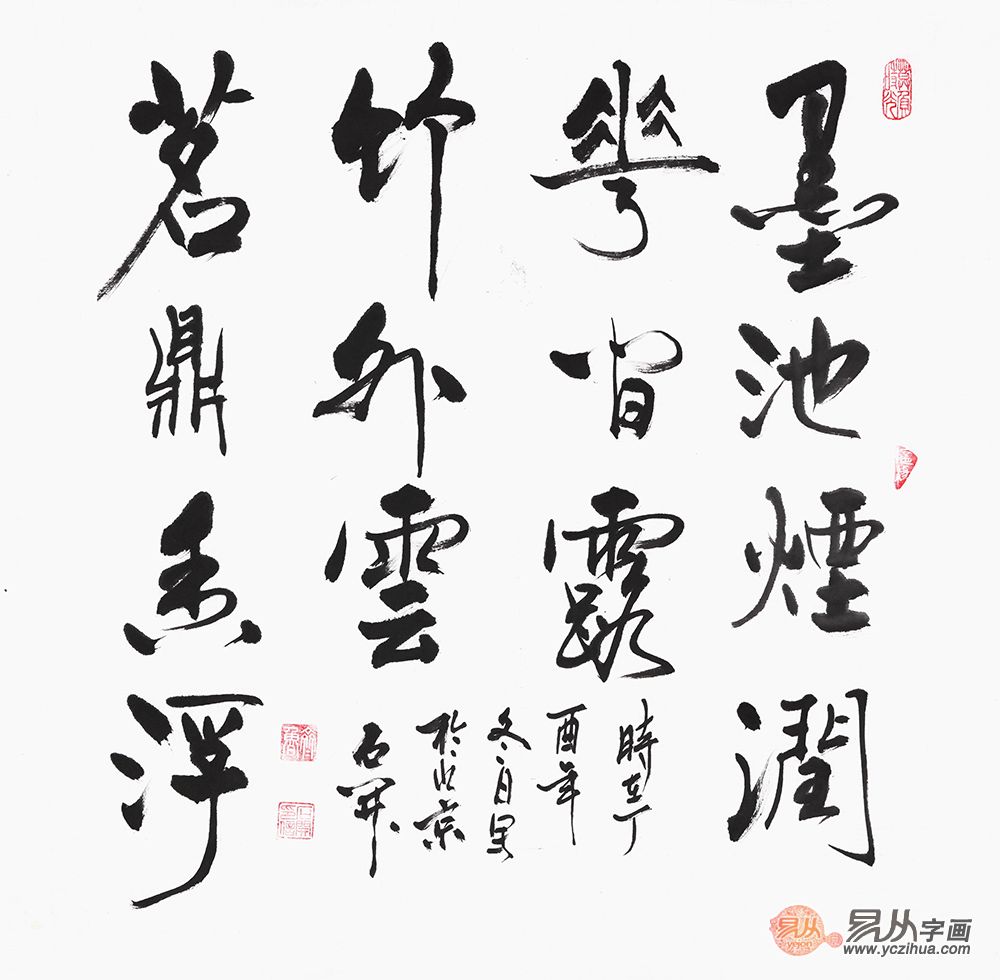 墨池煙潤
華間露
茗鼎香浮
竹外雲
時在丁
酉年
冬月
於北京
石開
易从字画
www.yczihua.com
易从
yejon